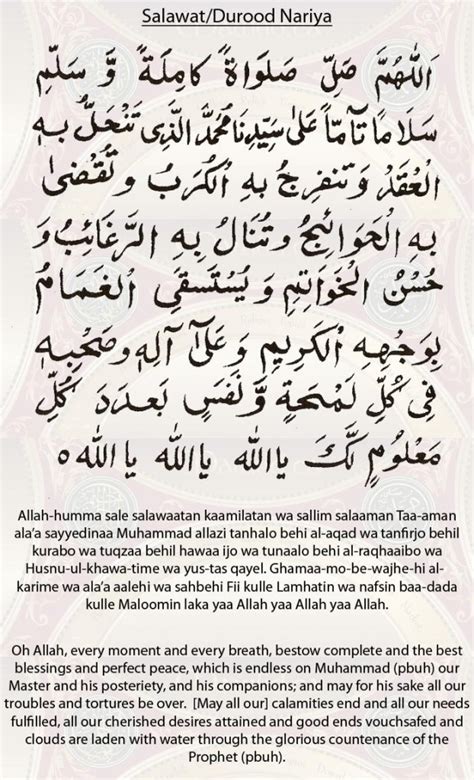 Salawat/Durood Nariya
اَللّٰهُمَّ صَلِّ صَلَوَاةً كَامِلَةً وَّ سَلِّمْ
سَلَامًا تَآمًّا عَلٰى سَيِّدِنَا مُحَمَّدِ الَّذِى تَنْحَلُّ بِهِ
الْعُقَدُ وَ تَنْفَرِجُ بِهِ الْكُرَبُ وَ تُقْضٰى
بِهِ الْحَوَائِجُ وَ تُنَالُ بِهِ الرَّغَائِبُ وَ
حُسْنُ الْخَوَاتِمِ وَ يُسْتَسْقَى الْغَمَامُ
بِوَجْهِهِ الْكَرِيمِ وَ عَلٰى آلِهِ وَ صَحْبِهِ
فِى كُلِّ لَمْحَةٍ وَّ نَفَسٍ بِعَدَدِ كُلِّ
مَعْلُومٍ لَّكَ يَا اَللّٰهُ يَا اَللّٰهُ يَا اَللّٰهُ ه
Allah-humma sale salawaatan kaamilatan wa sallim salaaman Taa-aman
ala'a sayyedinaa Muhammad allazi tanhalo behi al-aqad wa tanfirjo behil
kurabo wa tuqzaa behil hawaa ijo wa tunaalo behi al-raqhaaibo wa
Husnu-ul-khawa-time wa yus-tas qayel. Ghamaa-mo-be-wajhe-hi al-
karime wa ala'a aalehi wa sahbehi Fii kulle Lamhatin wa nafsin baa-dada
kulle Maloomin laka yaa Allah yaa Allah yaa Allah.
Oh Allah, every moment and every breath, bestow complete and the best
blessings and perfect peace, which is endless on Muhammad (pbuh) our
Master and his posteriety, and his companions; and may for his sake all our
troubles and tortures be over. [May all our] calamities end and all our needs
fulfilled, all our cherished desires attained and good ends vouchsafed and
clouds are laden with water through the glorious countenance of the
Prophet (pbuh).